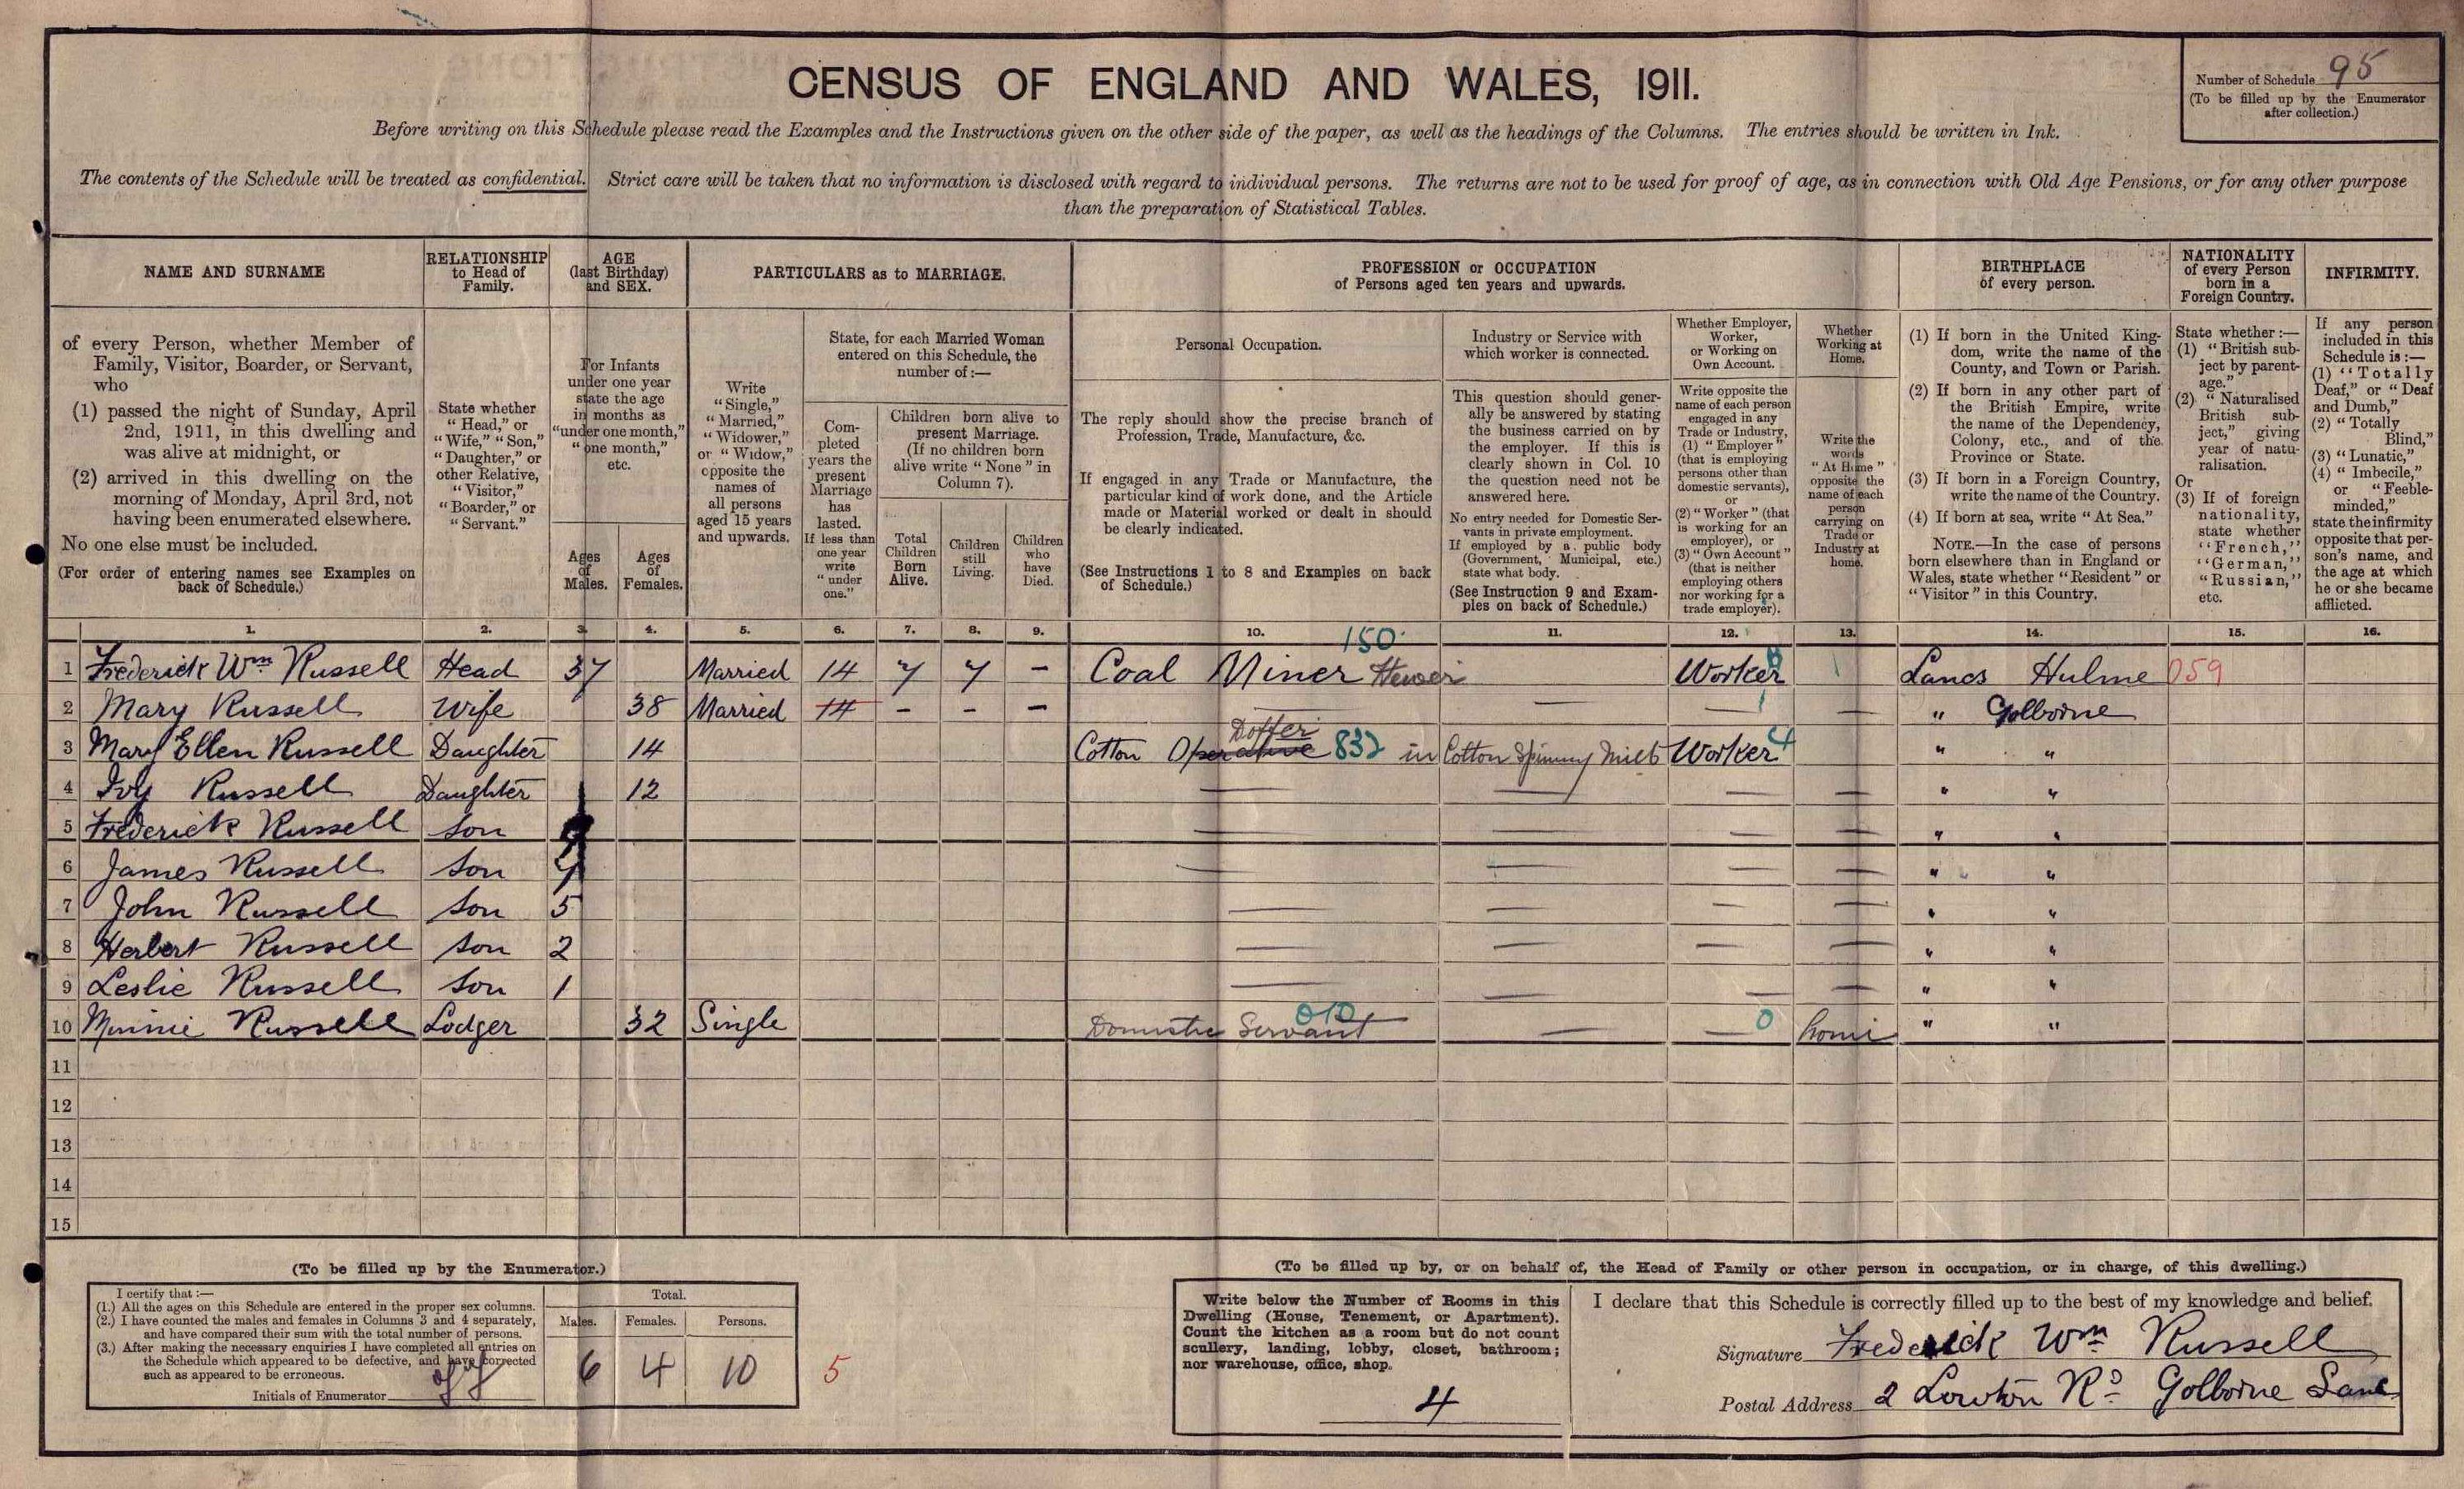 CENSUS OF ENGLAND AND WALES, 1911.
Number of Schedule 95
(To be filled up by the Enumerator
after collection.)
Before writing on this Schedule please read the Examples and the Instructions given on the other side of the paper, as well as the headings of the Columns. The entries should be written in Ink.
The contents of the Schedule will be treated as confidential. Strict care will be taken that no information is disclosed with regard to individual persons. The returns are not to be used for proof of age, as in connection with Old Age Pensions, or for any other purpose
than the preparation of Statistical Tables.
NAME AND SURNAME
of every Person, whether Member of
Family, Visitor, Boarder, or Servant,
who
(1) passed the night of Sunday, April
2nd, 1911, in this dwelling and
was alive at midnight, or
(2) arrived in this dwelling on the
morning of Monday, April 3rd, not
having been enumerated elsewhere.
No one else must be included.
(For order of entering names see Examples on
back of Schedule.)
RELATIONSHIP
to Head of
Family.
State whether
"Head," or
"Wife," "Son,"
"Daughter," or
other Relative,
"Visitor,"
"Boarder," or
"Servant."
AGE
(last Birthday)
and SEX.
For Infants
under one year
state the age
in months as
"under one month,"
"one month,"
etc.
Ages
of
Males.
Ages
of
Females.
PARTICULARS as to MARRIAGE.
Write
"Single,"
"Married,"
"Widower,"
or "Widow,"
opposite the
names of
all persons
aged 15 years
and upwards.
State, for each Married Woman
entered on this Schedule, the
number of:—
Com-
pleted
years the
present
Marriage
has
lasted.
If less than
one year
write
"under
one."
Children born alive to
present Marriage.
(If no children born
alive write "None" in
Column 7).
Total
Children
Born
Alive.
Children
still
Living.
Children
who
have
Died.
PROFESSION or OCCUPATION
of Persons aged ten years and upwards.
Personal Occupation.
The reply should show the precise branch of
Profession, Trade, Manufacture, &c.
If engaged in any Trade or Manufacture, the
particular kind of work done, and the Article
made or Material worked or dealt in should
be clearly indicated.
(See Instructions 1 to 8 and Examples on back
of Schedule.)
Industry or Service with
which worker is connected.
This question should gener-
ally be answered by stating
the business carried on by
the employer. If this is
clearly shown in Col. 10
the question need not be
answered here.
No entry needed for Domestic Ser-
vants in private employment.
If employed by a public body
(Government, Municipal, etc.)
state what body.
(See Instruction 9 and Exam-
ples on back of Schedule.)
Whether Employer,
Worker,
or Working on
Own Account.
Write opposite the
name of each person
engaged in any
Trade or Industry,
(1) "Employer"
(that is employing
persons other than
domestic servants),
or
(2) "Worker" (that
is working for an
employer), or
(3) "Own Account"
(that is neither
employing others
nor working for a
trade employer).
Whether
Working at
Home.
Write the
words
"At Home"
opposite the
name of each
person
carrying on
Trade or
Industry at
home.
BIRTHPLACE
of every person.
(1) If born in the United King-
dom, write the name of the
County, and Town or Parish.
(2) If born in any other part of
the British Empire, write
the name of the Dependency,
Colony, etc., and of the
Province or State.
(3) If born in a Foreign Country,
write the name of the Country.
(4) If born at sea, write "At Sea."
NOTE.—In the case of persons
born elsewhere than in England or
Wales, state whether "Resident" or
"Visitor" in this Country.
NATIONALITY
of every Person
born in a
Foreign Country.
State whether :—
(1) "British sub-
ject by parent-
age."
(2) "Naturalised
British sub-
ject," giving
year of natu-
ralisation.
Or
(3) If of foreign
nationality,
state whether
"French,"
"German,"
"Russian,"
etc.
INFIRMITY.
If any person
included in this
Schedule is :—
(1) "Totally
Deaf," or "Deaf
and Dumb,"
(2) "Totally
Blind,"
(3) "Lunatic,"
(4) "Imbecile,"
or "Feeble-
minded,"
state the infirmity
opposite that per-
son's name, and
the age at which
he or she became
afflicted.
1. 2. 3. 4. 5. 6. 7. 8. 9. 10. 11. 12. 13. 14. 15. 16.
150
1 Frederick Wm Russell Head 37 Married 14 7 7 – Coal Miner Hewer Worker Lancs Hulme 059
2 Mary Russell Wife 38 Married 14 – – – — — — " Golborne
Doffer
3 Mary Ellen Russell Daughter 14 Cotton Operative 832 in Cotton Spinning Mill Worker 4 " "
4 Ivy Russell Daughter 12 — — — — " "
5 Frederick Russell Son 9 — — — — " "
6 James Russell Son 7 — — — — " "
7 John Russell Son 5 — — — — " "
8 Herbert Russell Son 2 — — — — " "
9 Leslie Russell Son 1 — — — — " "
10 Minnie Russell Lodger 32 Single Domestic Servant — — 0 home " "
11
12
13
14
15
(To be filled up by the Enumerator.)
I certify that :—
(1.) All the ages on this Schedule are entered in the proper sex columns.
(2.) I have counted the males and females in Columns 3 and 4 separately,
and have compared their sum with the total number of persons.
(3.) After making the necessary enquiries I have completed all entries on
the Schedule which appeared to be defective, and have corrected
such as appeared to be erroneous.
Initials of Enumerator
Total.
Males. Females. Persons.
6 4 10 5
(To be filled up by, or on behalf of, the Head of Family or other person in occupation, or in charge, of this dwelling.)
Write below the Number of Rooms in this
Dwelling (House, Tenement, or Apartment).
Count the kitchen as a room but do not count
scullery, landing, lobby, closet, bathroom;
nor warehouse, office, shop.
4
I declare that this Schedule is correctly filled up to the best of my knowledge and belief.
Signature Frederick Wm Russell
Postal Address 2 Lowton Rd Golborne Lancs